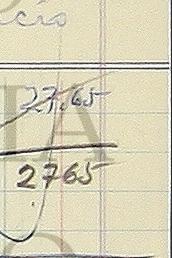 cio
27.65
2765